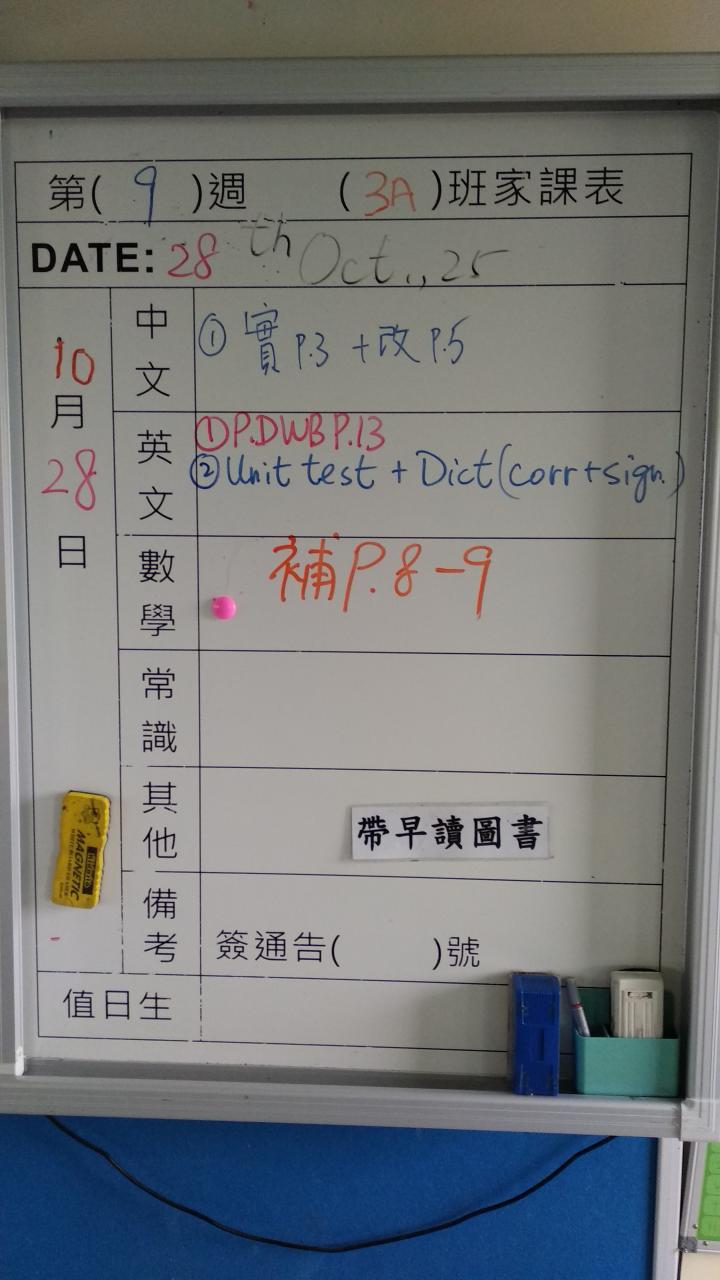 第( 9 )週 ( 3A )班家課表
DATE: 28th Oct., 25
10月28日
中文
① 實 P.3 + 改 P.5
英文
① P.DWB P.13
② Unit test + Dict (corr+sign.)
數學
補 P.8-9
常識
其他
帶早讀圖書
備考
簽通告( )號
值日生
MAGNETIC